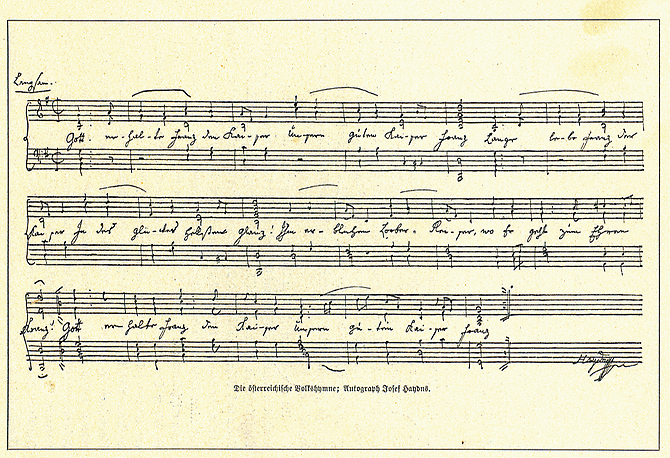 Langsam.
Gott! er-hal-te Franz den Kai-ser Unsern guten Kai-ser Franz Lange le-be Franz der
Kai-ser In des Glü-ckes hellstem Glanz! Ihm er-blühen Lorber-Rei-ser, wo Er geht zum Ehren
Kranz! Gott er-halte Franz den Kai-ser Unsern gu-ten Kai-ser Franz
Haydn
Die österreichische Volkshymne; Autograph Josef Haydns.